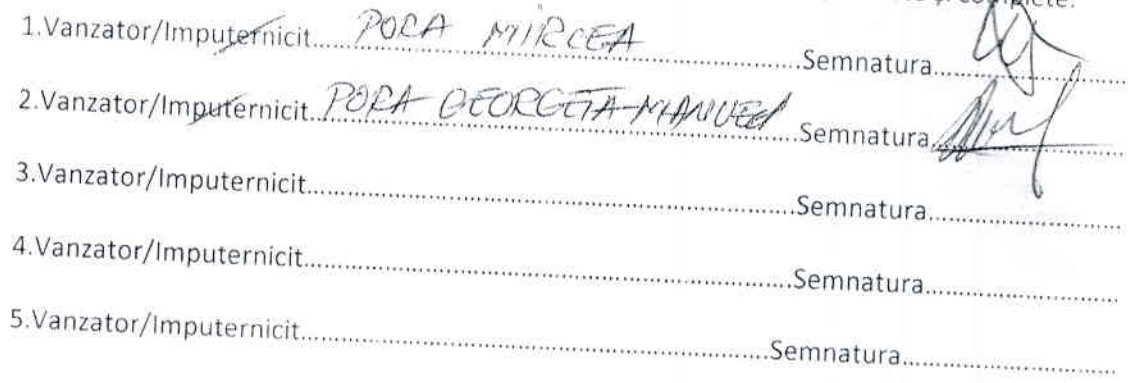 complete.
1.Vanzator/Imputernicit....PORA MIRCEA....Semnatura....
2.Vanzator/Imputernicit.PORA GEORGETA-MANUELA....Semnatura....
3.Vanzator/Imputernicit....Semnatura....
4.Vanzator/Imputernicit....Semnatura....
5.Vanzator/Imputernicit....Semnatura....